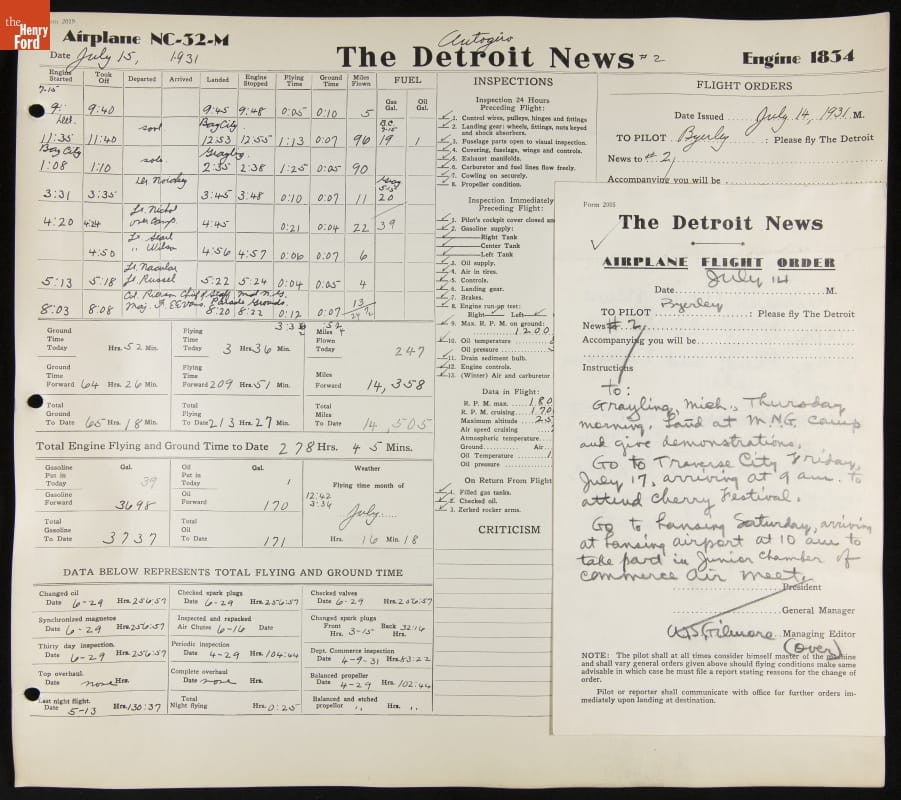 the
Henry
Ford
Form 2019
Airplane NC-32-M
Date July 15, 1931
Autogiro
The Detroit News #2
Engine 1834
Engine Started Took Off Departed Arrived Landed Engine Stopped Flying Time Ground Time Miles Flown FUEL
Gas Gal. Oil Gal.
9: 9:40 9:45 9:48 0:05 0:10 5
11:35 11:40 solo Bay City 12:53 12:55 1:13 0:07 96 19 1
Bay City
1:08 1:10 solo Grayling 2:35 2:38 1:25 0:05 90
3:31 3:35 3:45 3:48 0:10 0:07 11 20
4:20 4:24 Lt. Nichol over camp 4:45 0:21 0:04 22 39
4:50 " Wilson 4:56 4:57 0:06 0:07 6
5:13 5:18 Lt. Russel 5:22 5:24 0:04 0:05 4
8:03 8:08 8:20 8:22 0:12 0:07 13
Ground Time Today Hrs. 52 Min.
Flying Time Today 3 Hrs. 36 Min.
Miles Flown Today 247
Ground Time Forward 64 Hrs. 26 Min.
Flying Time Forward 209 Hrs. 51 Min.
Miles Forward 14,358
Total Ground To Date 65 Hrs. 18 Min.
Total Flying To Date 213 Hrs. 27 Min.
Total Miles To Date 14,505
Total Engine Flying and Ground Time to Date 278 Hrs. 45 Mins.
Gasoline Put in Today Gal. 39
Oil Put in Today Gal. 1
Weather
Gasoline Forward 3698
Oil Forward 170
Flying time month of
12:42
3:36
July
Total Gasoline To Date 3737
Total Oil To Date 171
Hrs. 16 Min. 18
DATA BELOW REPRESENTS TOTAL FLYING AND GROUND TIME
Changed oil Date 6-29 Hrs. 256:57
Checked spark plugs Date 6-29 Hrs. 256:57
Checked valves Date 6-29 Hrs. 256:57
Synchronized magnetos Date 6-29 Hrs. 256:57
Inspected and repacked Air Chutes 6-16 Date
Changed spark plugs Front Hrs. 3-15 Back 32:16 Hrs.
Thirty day inspection. Date 6-29 Hrs. 256:57
Periodic inspection Date 4-29 Hrs. 104:44
Dept. Commerce inspection Date 4-9-31 Hrs. 83:22
Top overhaul. Date none Hrs.
Complete overhaul Date none Hrs.
Balanced propeller Date 4-29 Hrs. 102:44
Last night flight. Date 5-13 Hrs. 130:37
Total Night flying Hrs. 0:25
Balanced and etched propellor " Hrs. "
INSPECTIONS
Inspection 24 Hours
Preceding Flight:
1. Control wires, pulleys, hinges and fittings
2. Landing gear: wheels, fittings, nuts keyed and shock absorbers.
3. Fuselage parts open to visual inspection.
4. Covering, fuselage, wings and controls.
5. Exhaust manifolds.
6. Carburetor and fuel lines flow freely.
7. Cowling on securely.
8. Propeller condition.
Inspection Immediately
Preceding Flight:
1. Pilot's cockpit cover closed an
2. Gasoline supply:
Right Tank
Center Tank
Left Tank
3. Oil supply.
4. Air in tires.
5. Controls.
6. Landing gear.
7. Brakes.
8. Engine run-up test:
Right Left
9. Max. R. P. M. on ground:
1200
10. Oil temperature
Oil pressure
11. Drain sediment bulb.
12. Engine controls.
13. (Winter) Air and carburetor
Data in Flight:
R. P. M. max. 180
R. P. M. cruising 170
Maximum altitude 25
Air speed cruising
Atmospheric temperature
Ground Air
Oil Temperature
Oil pressure
On Return From Flight
1. Filled gas tanks.
2. Checked oil.
3. Zerked rocker arms.
CRITICISM
FLIGHT ORDERS
Date Issued July 14, 1931. M.
TO PILOT Byerley : Please fly The Detroit
News to #2
Accompanying you will be
Form 2015
The Detroit News
AIRPLANE FLIGHT ORDER
July 14
Date M.
TO PILOT Byerley : Please fly The Detroit
News #2
Accompanying you will be
Instructions
To:
Grayling, Mich., Thursday
morning. Land at M.N.G. Camp
and give demonstrations.
Go to Traverse City Friday,
July 17, arriving at 9 am. to
attend Cherry Festival.
Go to Lansing Saturday, arriving
at Lansing airport at 10 am to
take part in Junior Chamber of
Commerce air meet.
President
General Manager
Gilmore Managing Editor
(over)
NOTE: The pilot shall at all times consider himself master of the machine
and shall vary general orders given above should flying conditions make same
advisable in which case he must file a report stating reasons for the change of
order.
Pilot or reporter shall communicate with office for further orders im-
mediately upon landing at destination.